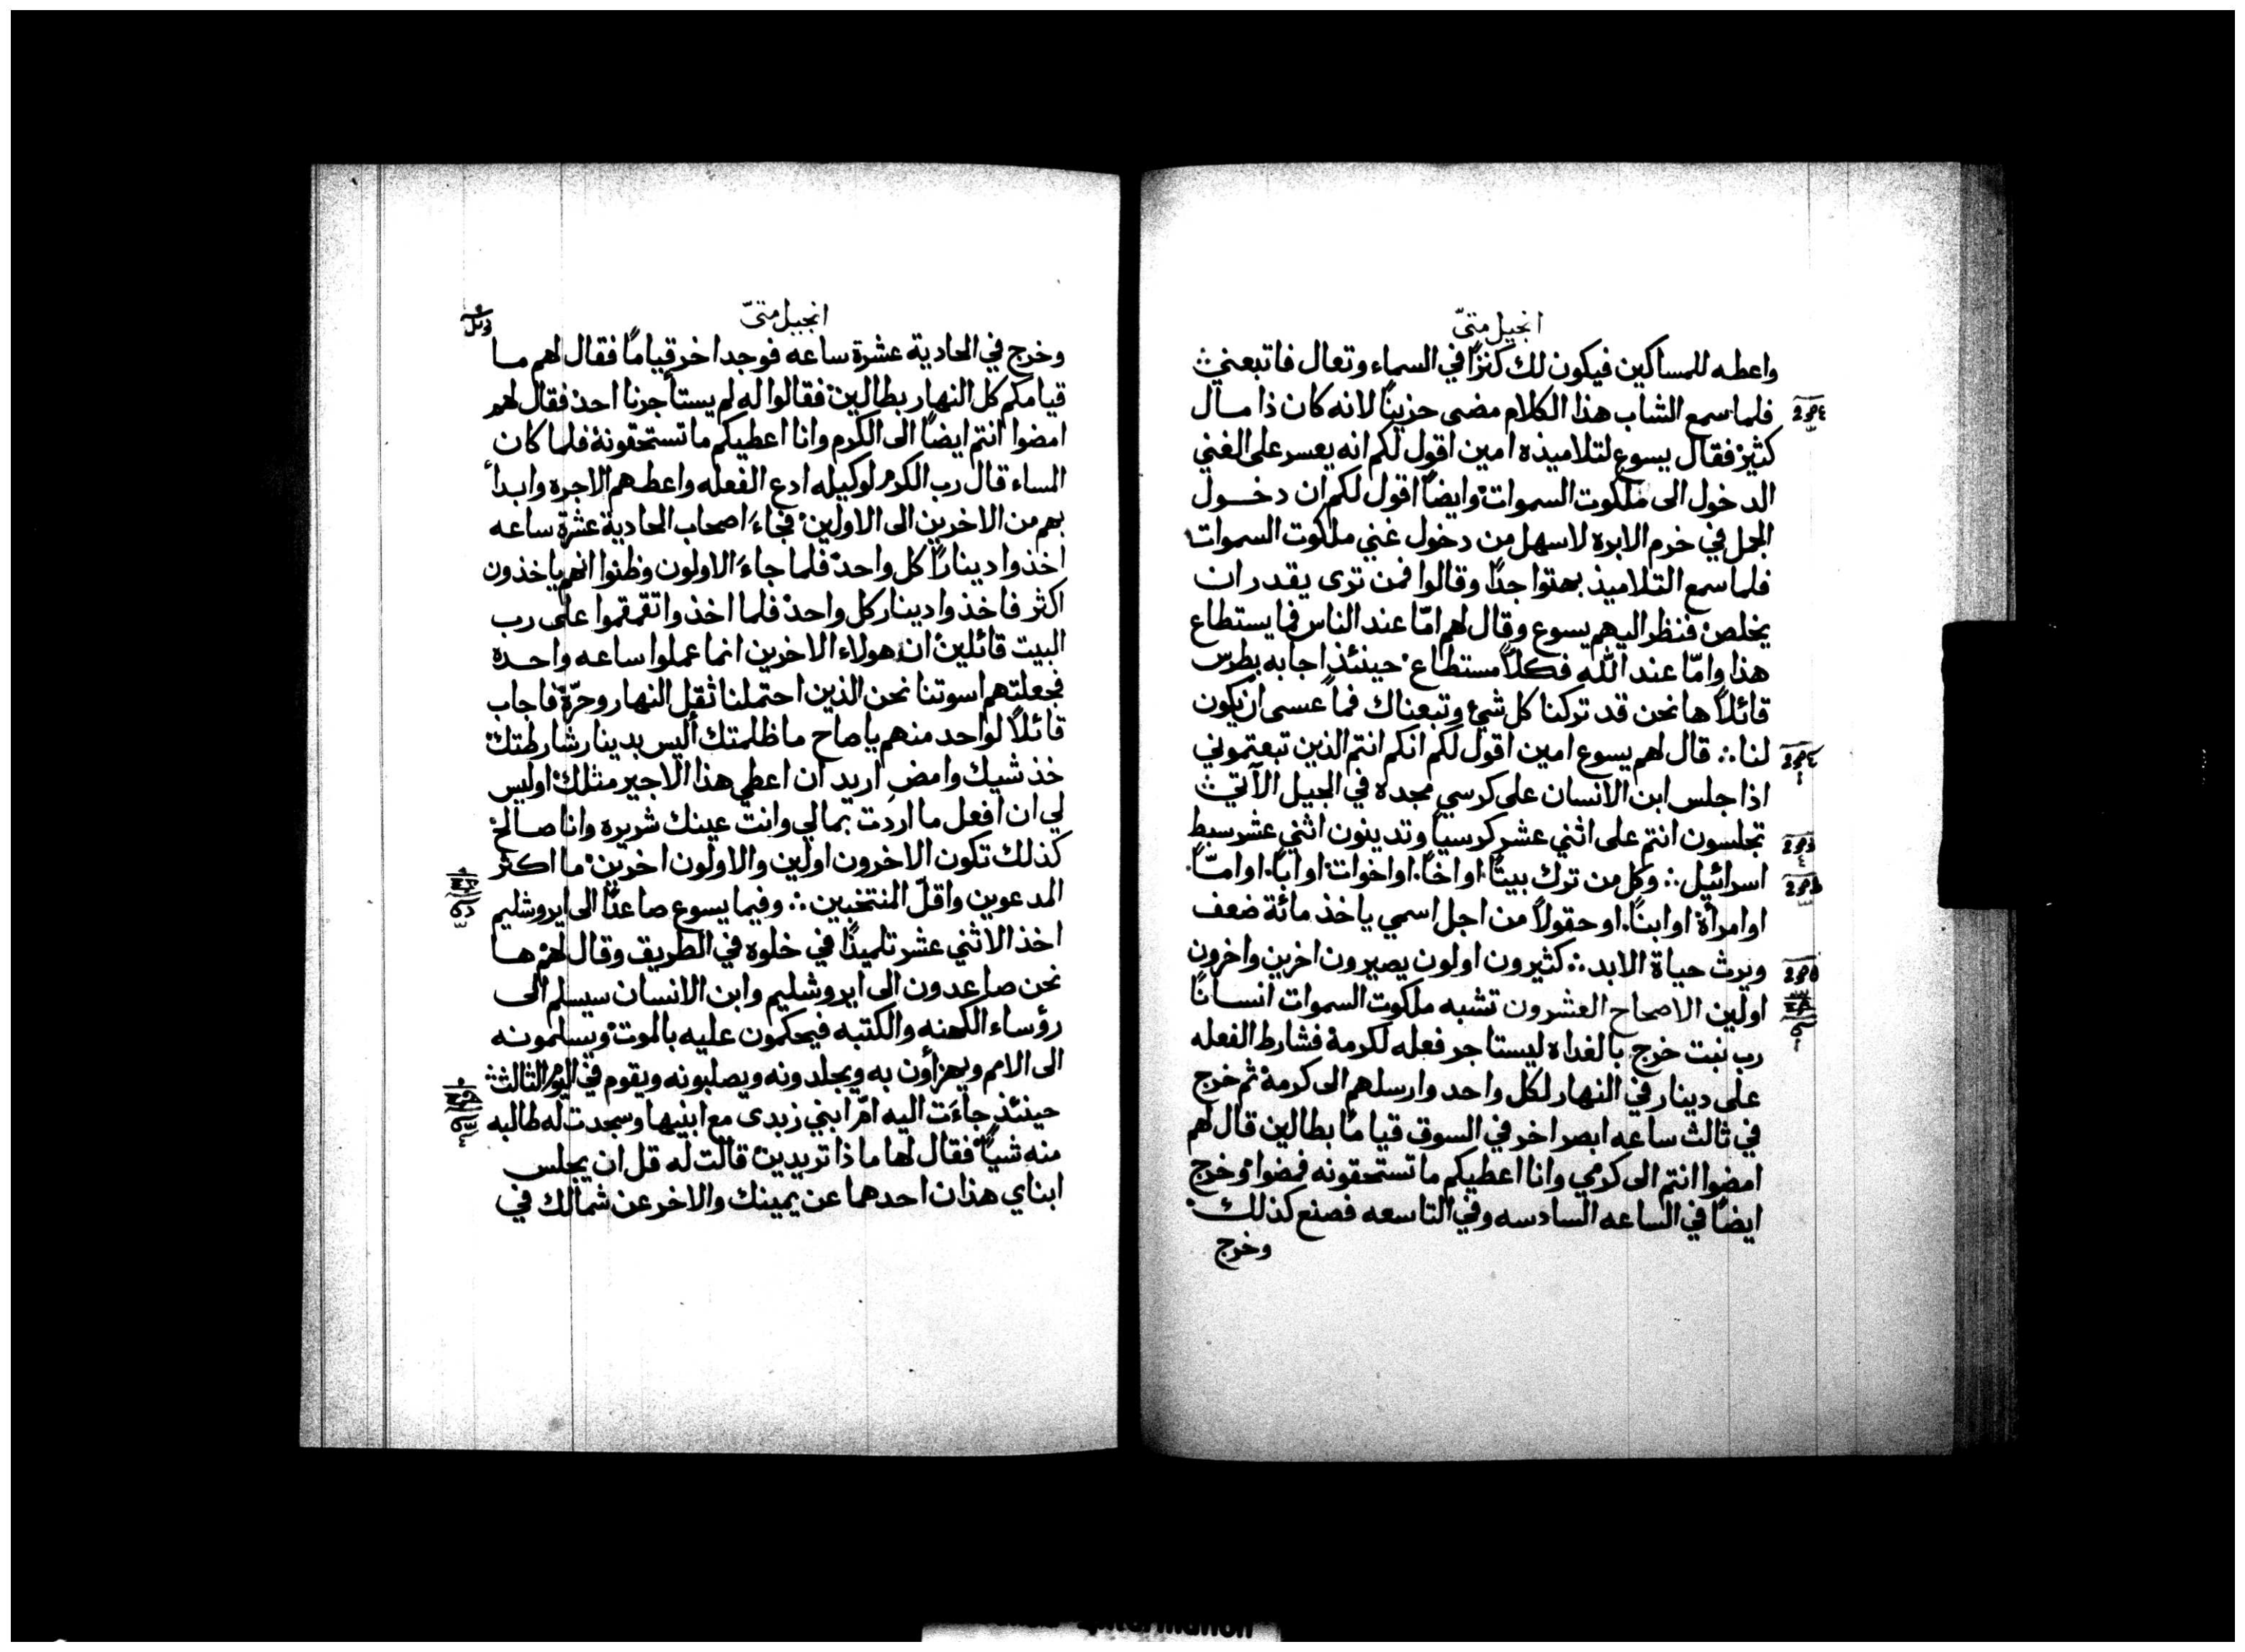 انجيل متىّ
واعطه للمساكين فيكون لك كنزًا في السماء وتعال فاتبعني
فلما سمع الشاب هذا الكلام مضى حزينًا لانه كان ذا مال
كثير فقال يسوع لتلاميذه امين اقول لكم انه يعسر على الغني
الدخول الى ملكوت السموات وايضًا اقول لكم ان دخول
الجمل في خرم الابره لاسهل من دخول غني ملكوت السموات
فلما سمع التلاميذ بهتوا جدًا وقالوا فمن ترى يقدر ان
يخلص فنظر اليهم يسوع وقال لهم امّا عند الناس فما يستطاع
هذا وامّا عند الله فكلاً مستطاع حينئذٍ اجابه بطرس
قائلاً ها نحن قد تركنا كل شئ وتبعناك فما عسى ان يكون
لنا ∴ قال لهم يسوع امين اقول لكم انكم انتم الذين تبعتموني
اذا جلس ابن الانسان على كرسي مجده في الجيل الآتي
تجلسون انتم على اثني عشر كرسيًا وتدينون اثني عشر سبط
اسرائيل ∴ وكل من ترك بيتًا. او اخًا. او اخوات. او ابًا. او امّا.
او امرأة او ابنًا. او حقولاً من اجل اسمي ياخذ مائة ضعف
ويرث حياة الابد ∴ كثيرون اولون يصيرون اخرين واخرون
اولين الاصحاح العشرون تشبه ملكوت السموات انسانًا
رب نبت خرج بالغداه ليستاجر فعله لكرمة فشارط الفعله
على دينار في النهار لكل واحد وارسلهم الى كرمة ثم خرج
في ثالث ساعه ابصر اخر في السوق قيامًا بطالين قال لهم
امضوا انتم الى كرمي وانا اعطيكم ما تستحقونه فمضوا وخرج
ايضًا في الساعه السادسه وفي التاسعه فصنع كذلك
وخرج
انجيل متىّ
وخرج في الحادية عشرة ساعه فوجد اخر قيامًا فقال لهم ما
قيامكم كل النهار بطالين فقالوا له لم يستأجرنا احد فقال لهم
امضوا انتم ايضًا الى الكرم وانا اعطيكم ما تستحقونة فلما كان
المساء قال رب الكرم لوكيله ادع الفعله واعطهم الاجره وابدأ
بهم من الاخرين الى الاولين فجاء اصحاب الحادية عشرة ساعه
اخذوا دينارًا كل واحد فلما جاء الاولون وظنوا انهم ياخذون
اكثر فاخذوا دينار كل واحد فلما اخذوا تقمقموا على رب
البيت قائلين ان هولاء الاخرين انما عملوا ساعه واحده
فجعلتهم اسوتنا نحن الذين احتملنا ثقل النهار وحرّة فاجاب
قائلاً لواحد منهم يا صاح ما ظلمتك أليس بدينار شارطتك
خذ شيك وامضِ اريد ان اعطي هذا الاجير مثلك اوليس
لي ان افعل ما اردت بمالي وانت عينك شريره وانا صالح
كذلك تكون الاخرون اولين والاولون اخرين ما اكثر
المدعوين واقلّ المنتخبين ∴ وفيما يسوع صاعدًا الى ايروشليم
اخذ الاثني عشر تلميذًا في خلوه في الطريق وقال لهم ها
نحن صاعدون الى ايروشليم وابن الانسان سيسلم الى
رؤساء الكهنه والكتبه فيحكمون عليه بالموت ويسلمونه
الى الامم ويهزأون به ويجلدونه ويصلبونه ويقوم في اليوم الثالث
حينئذٍ جاءَت اليه امّ ابني زبدى مع ابنيها وسجدت له طالبه
منه شيًا فقال لها ماذا تريدين قالت له قل ان يجلس
ابناي هذان احدهما عن يمينك والاخر عن شمالك في